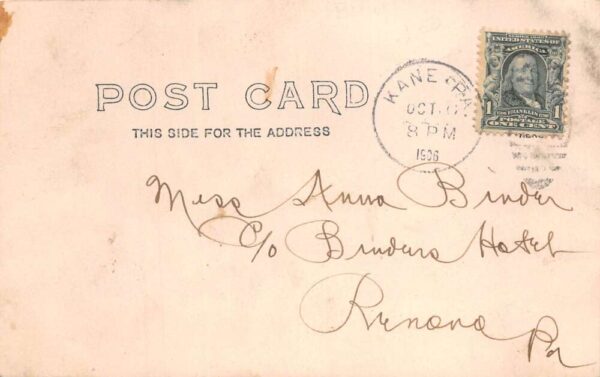 POST CARD
THIS SIDE FOR THE ADDRESS
KANE PA.
OCT
8 PM
1906
UNITED STATES OF
AMERICA
1 FRANKLIN 1
POSTAGE
ONE CENT
Miss Anna Binder
c/o Binders Hotel
Renovo
Pa